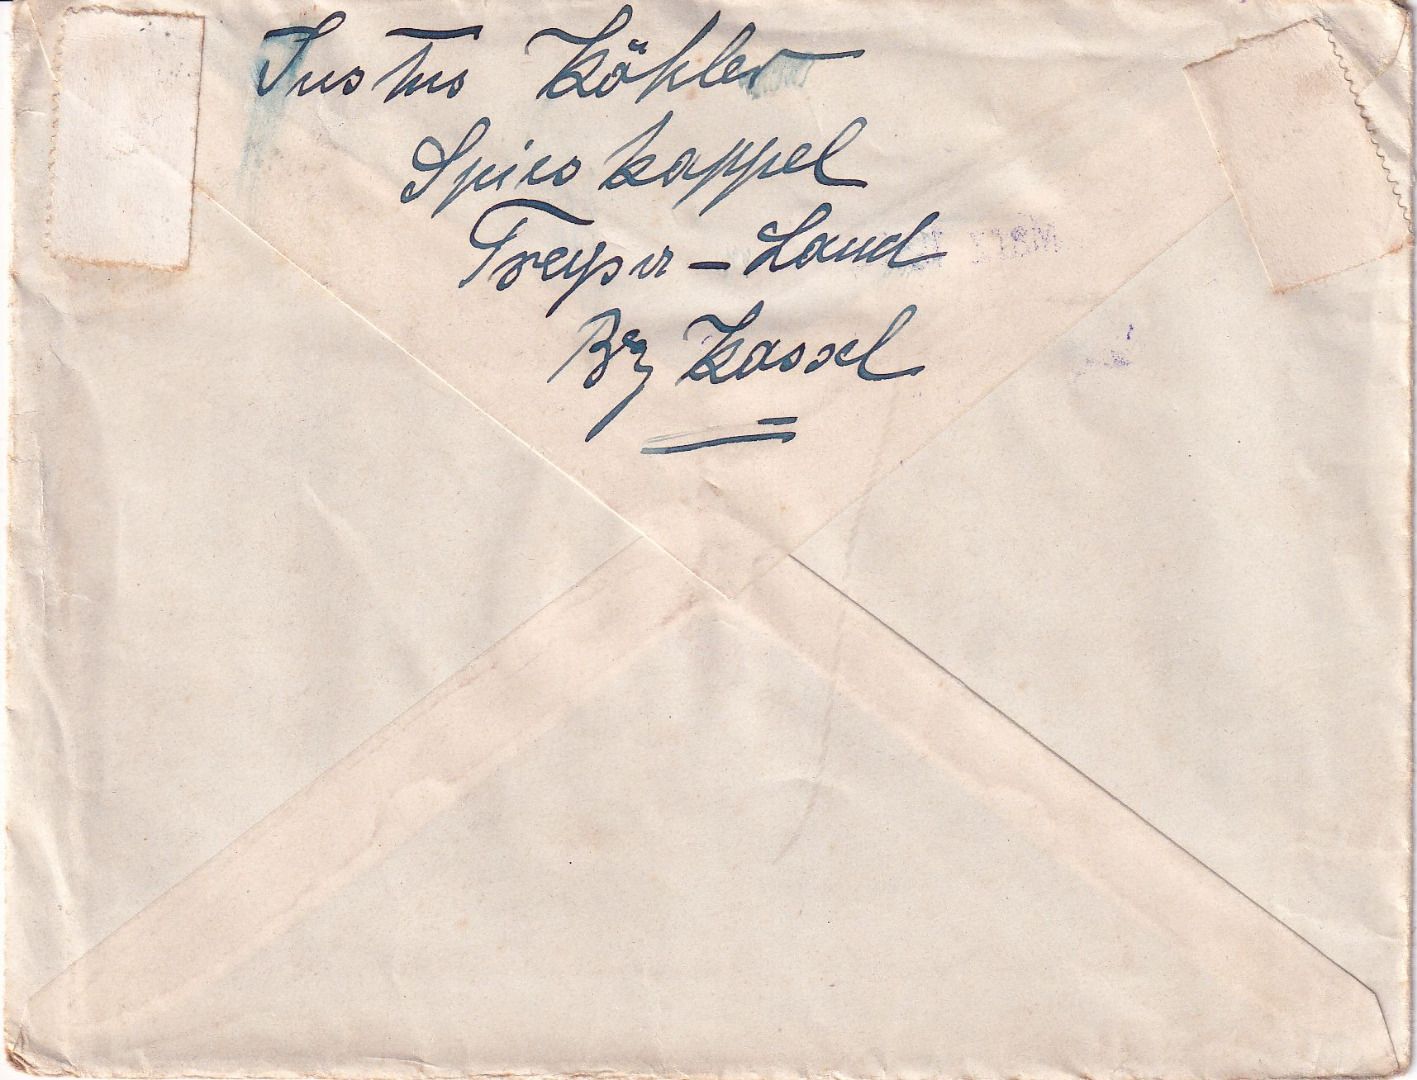 Justus Köhler
Spieskappel
Treysa - Land
Bz Kassel